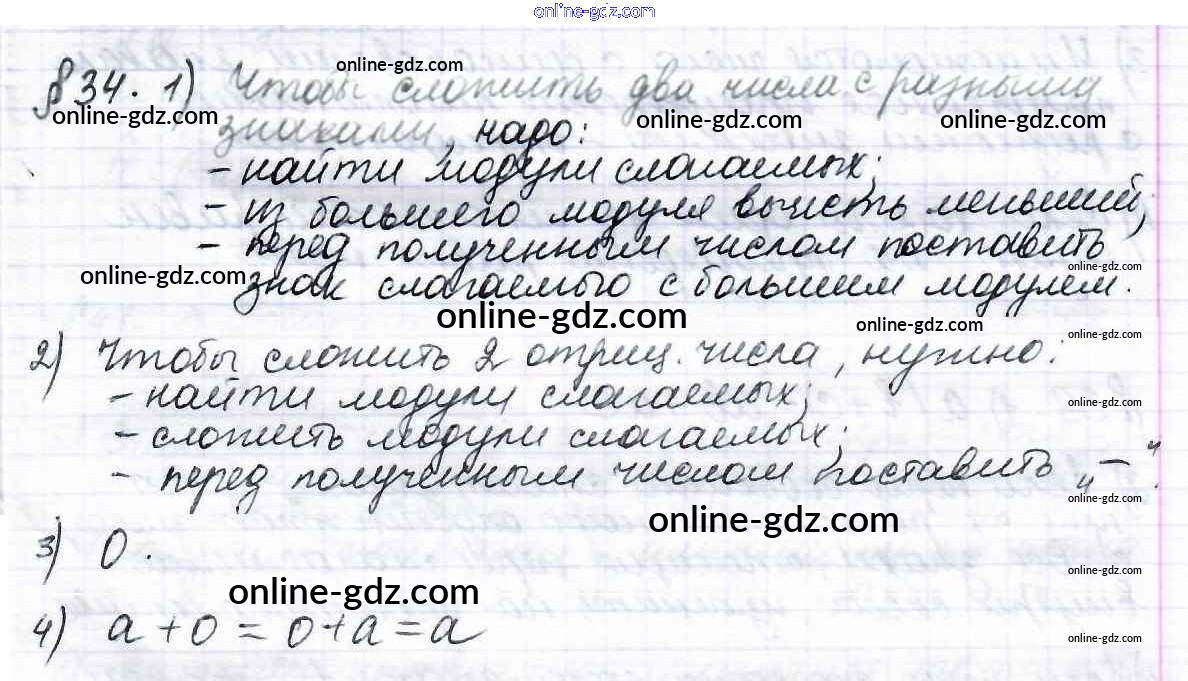 online-gdz.com
online-gdz.com
§ 34. 1) Чтобы сложить два числа с разными
online-gdz.com online-gdz.com online-gdz.com
знаками, надо:
- найти модули слагаемых;
- из большего модуля вычесть меньший;
- перед полученным числом поставить
online-gdz.com online-gdz.com
знак слагаемого с большим модулем.
online-gdz.com online-gdz.com
online-gdz.com
2) Чтобы сложить 2 отриц. числа, нужно:
- найти модули слагаемых;
online-gdz.com
- сложить модули слагаемых;
- перед полученным числом поставить „—“.
online-gdz.com
online-gdz.com
3) 0.
online-gdz.com
online-gdz.com
4) a + 0 = 0 + a = a
online-gdz.com